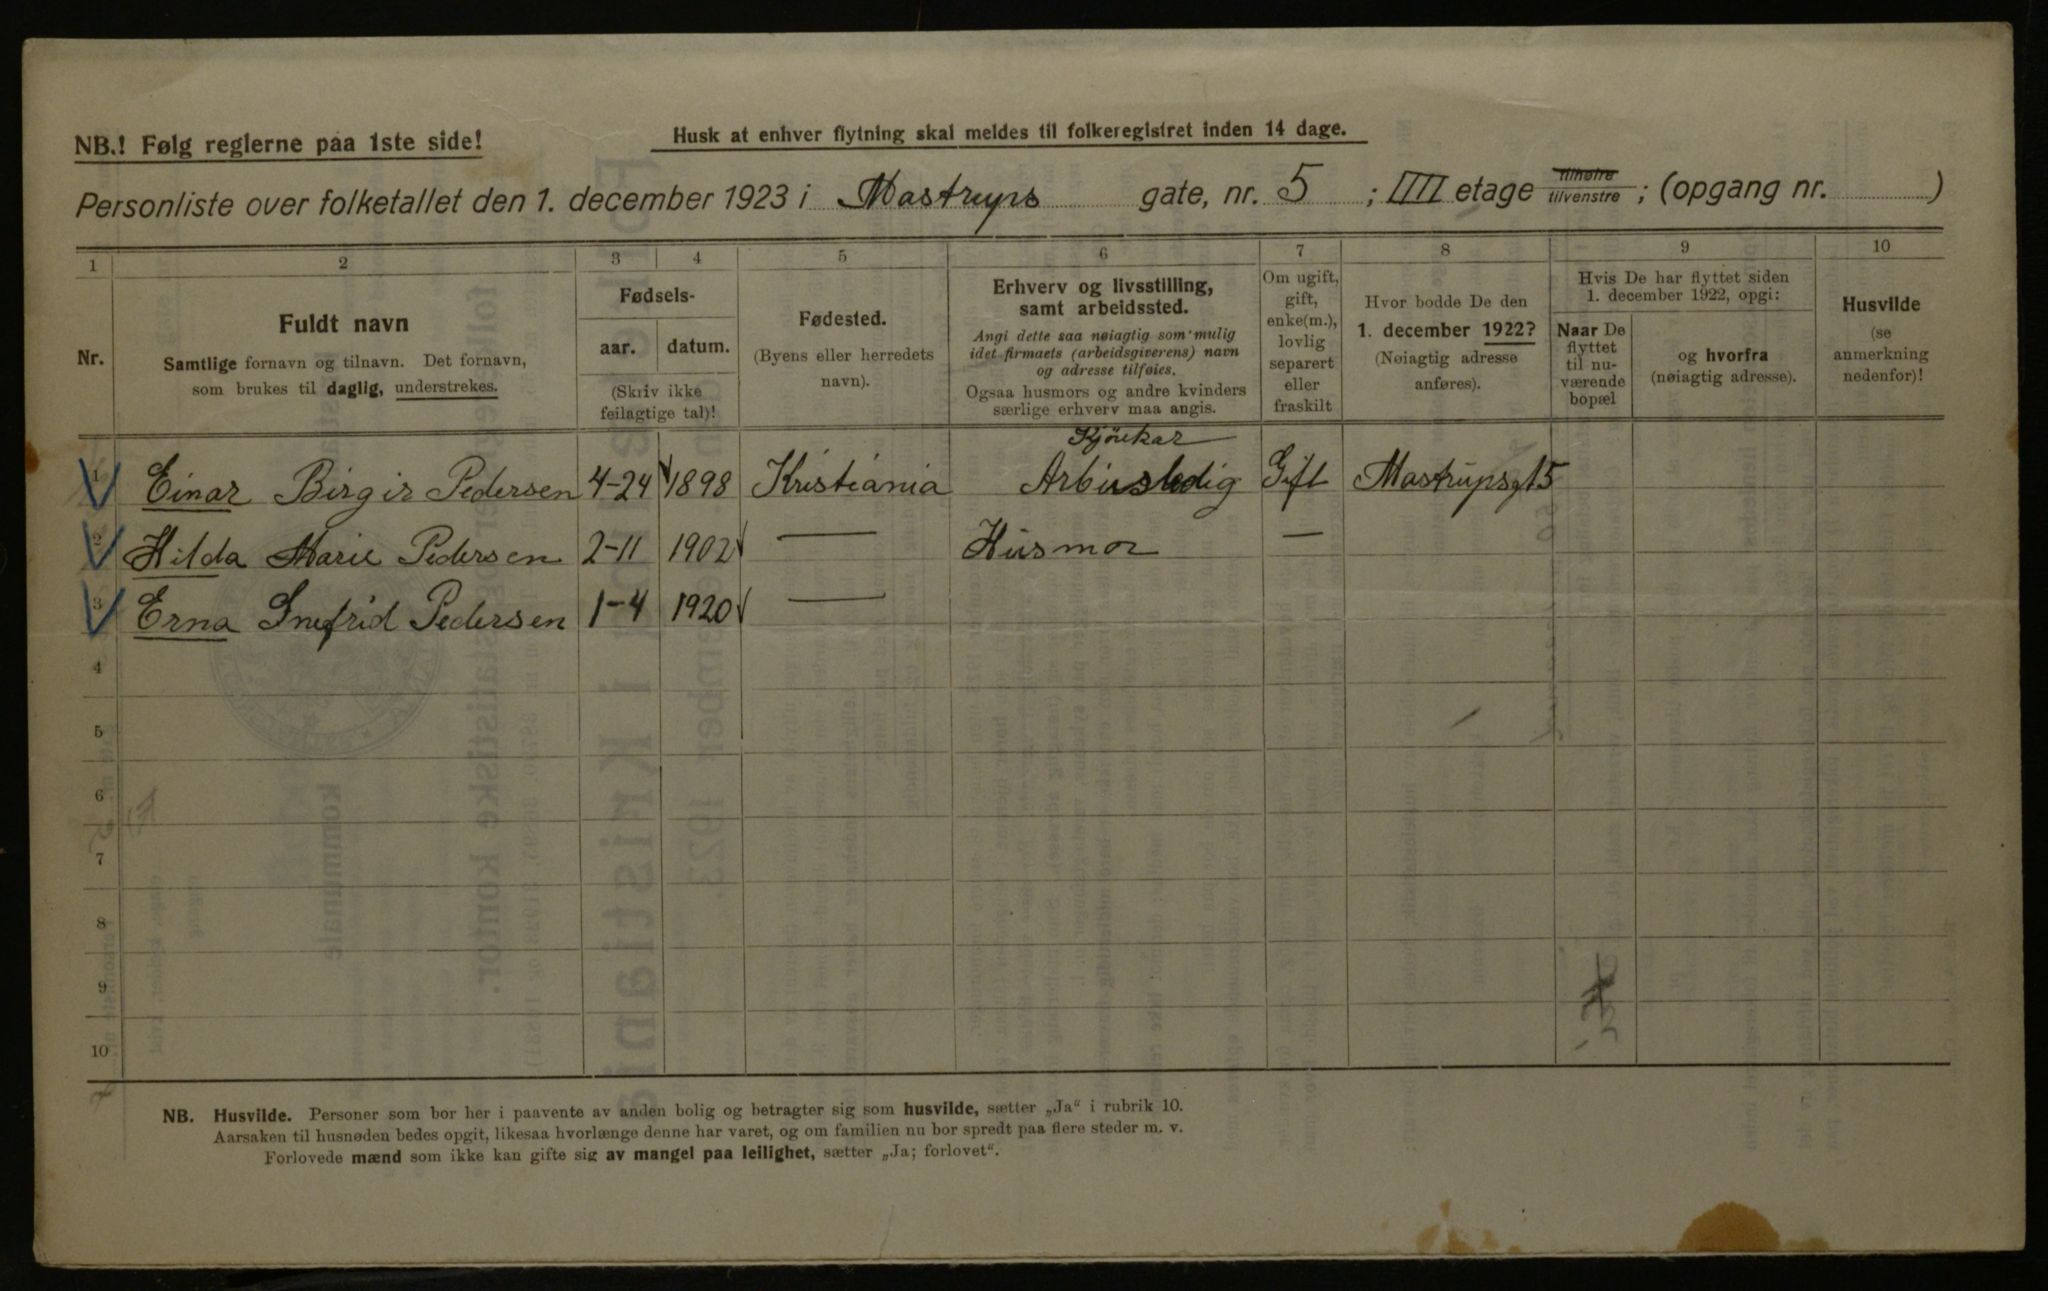 NB.! Følg reglerne paa 1ste side!
Husk at enhver flytning skal meldes til folkeregistret inden 14 dage.
Personliste over folketallet den 1. december 1923 i Mastrups gate, nr. 5 ; IIII etage tilhøire tilvenstre ; (opgang nr. )
1 2 3 4 5 6 7 8 9 10
Nr.
Fuldt navn
Samtlige fornavn og tilnavn. Det fornavn,
som brukes til daglig, understrekes.
Fødsels-
aar. datum.
(Skriv ikke
feilagtige tal)!
Fødested.
(Byens eller herredets
navn).
Erhverv og livsstilling,
samt arbeidssted.
Angi dette saa nøiagtig som mulig
idet firmaets (arbeidsgiverens) navn
og adresse tilføies.
Ogsaa husmors og andre kvinders
særlige erhverv maa angis.
Om ugift,
gift,
enke(m.),
lovlig
separert
eller
fraskilt
Hvor bodde De den
1. december 1922?
(Nøiagtig adresse
anføres).
Hvis De har flyttet siden
1. december 1922, opgi:
Naar De
flyttet
til nu-
værende
bopæl
og hvorfra
(nøiagtig adresse).
Husvilde
(se
anmerkning
nedenfor)!
Kjörekar
1 Einar Birgir Pedersen 4-24 1898 Kristiania Arbiusledig Gift Mastrupsg 15
2 Hilda Marie Pedersen 2-11 1902 — Husmor —
3 Erna Snefrid Pedersen 1-4 1920 —
4
5
6
7
8
9
10
NB. Husvilde. Personer som bor her i paavente av anden bolig og betragter sig som husvilde, sætter „Ja“ i rubrik 10.
Aarsaken til husnøden bedes opgit, likesaa hvorlænge denne har varet, og om familien nu bor spredt paa flere steder m. v.
Forlovede mænd som ikke kan gifte sig av mangel paa leilighet, sætter „Ja; forlovet“.